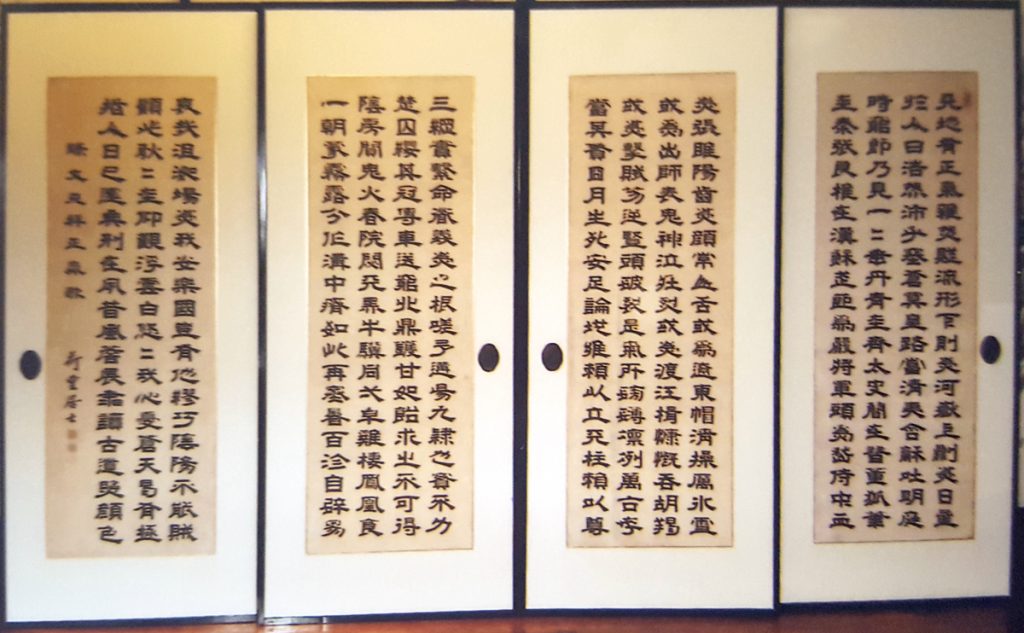 天地有正氣雜然賦流形下則為河嶽上則為日星
於人曰浩然沛乎塞蒼冥皇路當清夷含龢吐明庭
時窮節乃見一〻垂丹青在齊太史簡在晉董狐筆
在秦張良椎在漢蘇武節為嚴將軍頭為嵇侍中血
為張睢陽齒為顏常山舌或為遼東帽清操厲冰雪
或為出師表鬼神泣壯烈或為渡江楫慷慨吞胡羯
或為擊賊笏逆豎頭破裂是氣所磅礴凜冽萬古存
當其貫日月生死安足論地維賴以立天柱賴以尊
三綱實繫命道義為之根嗟予遘陽九隸也實不力
楚囚纓其冠傳車送窮北鼎鑊甘如飴求之不可得
陰房闃鬼火春院閟天黑牛驥同弌皁雞棲鳳凰食
一朝蒙霧露分作溝中瘠如此再寒暑百沴自辟易
哀哉沮洳場為我安樂國豈有他繆巧陰陽不能賊
顧此耿〻在仰觀浮雲白悠〻我心憂蒼天曷有極
哲人日已遠典刑在夙昔風簷展書讀古道照顏色
文丞相正氣歌
居士